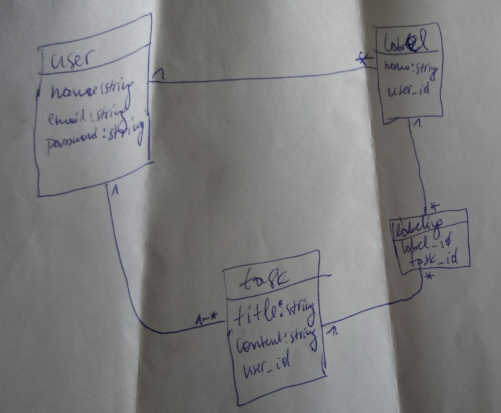 user
name:string
email:string
password:string
1
*
label
name:string
user_id
1
*
labeling
label_id
task_id
*
1
1-*
task
title:string
content:string
user_id
1